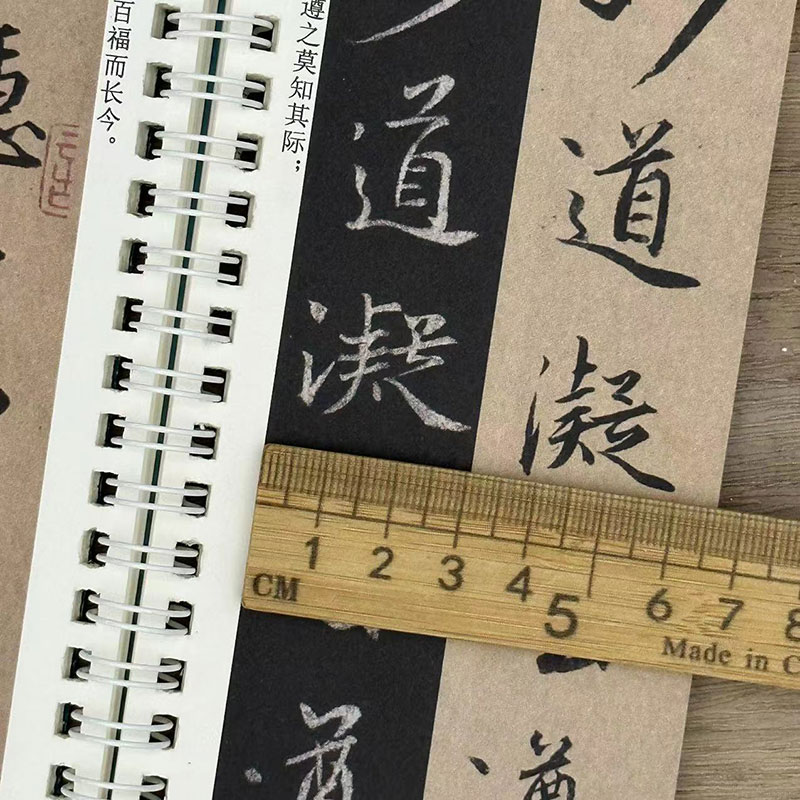 道凝
道凝
遵之莫知其际；
百福而长今。
1 2 3 4 5 6 7 8
CM
Made in C